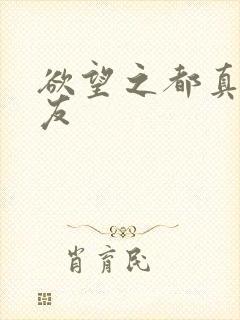 欲望之都真
友
肖育民